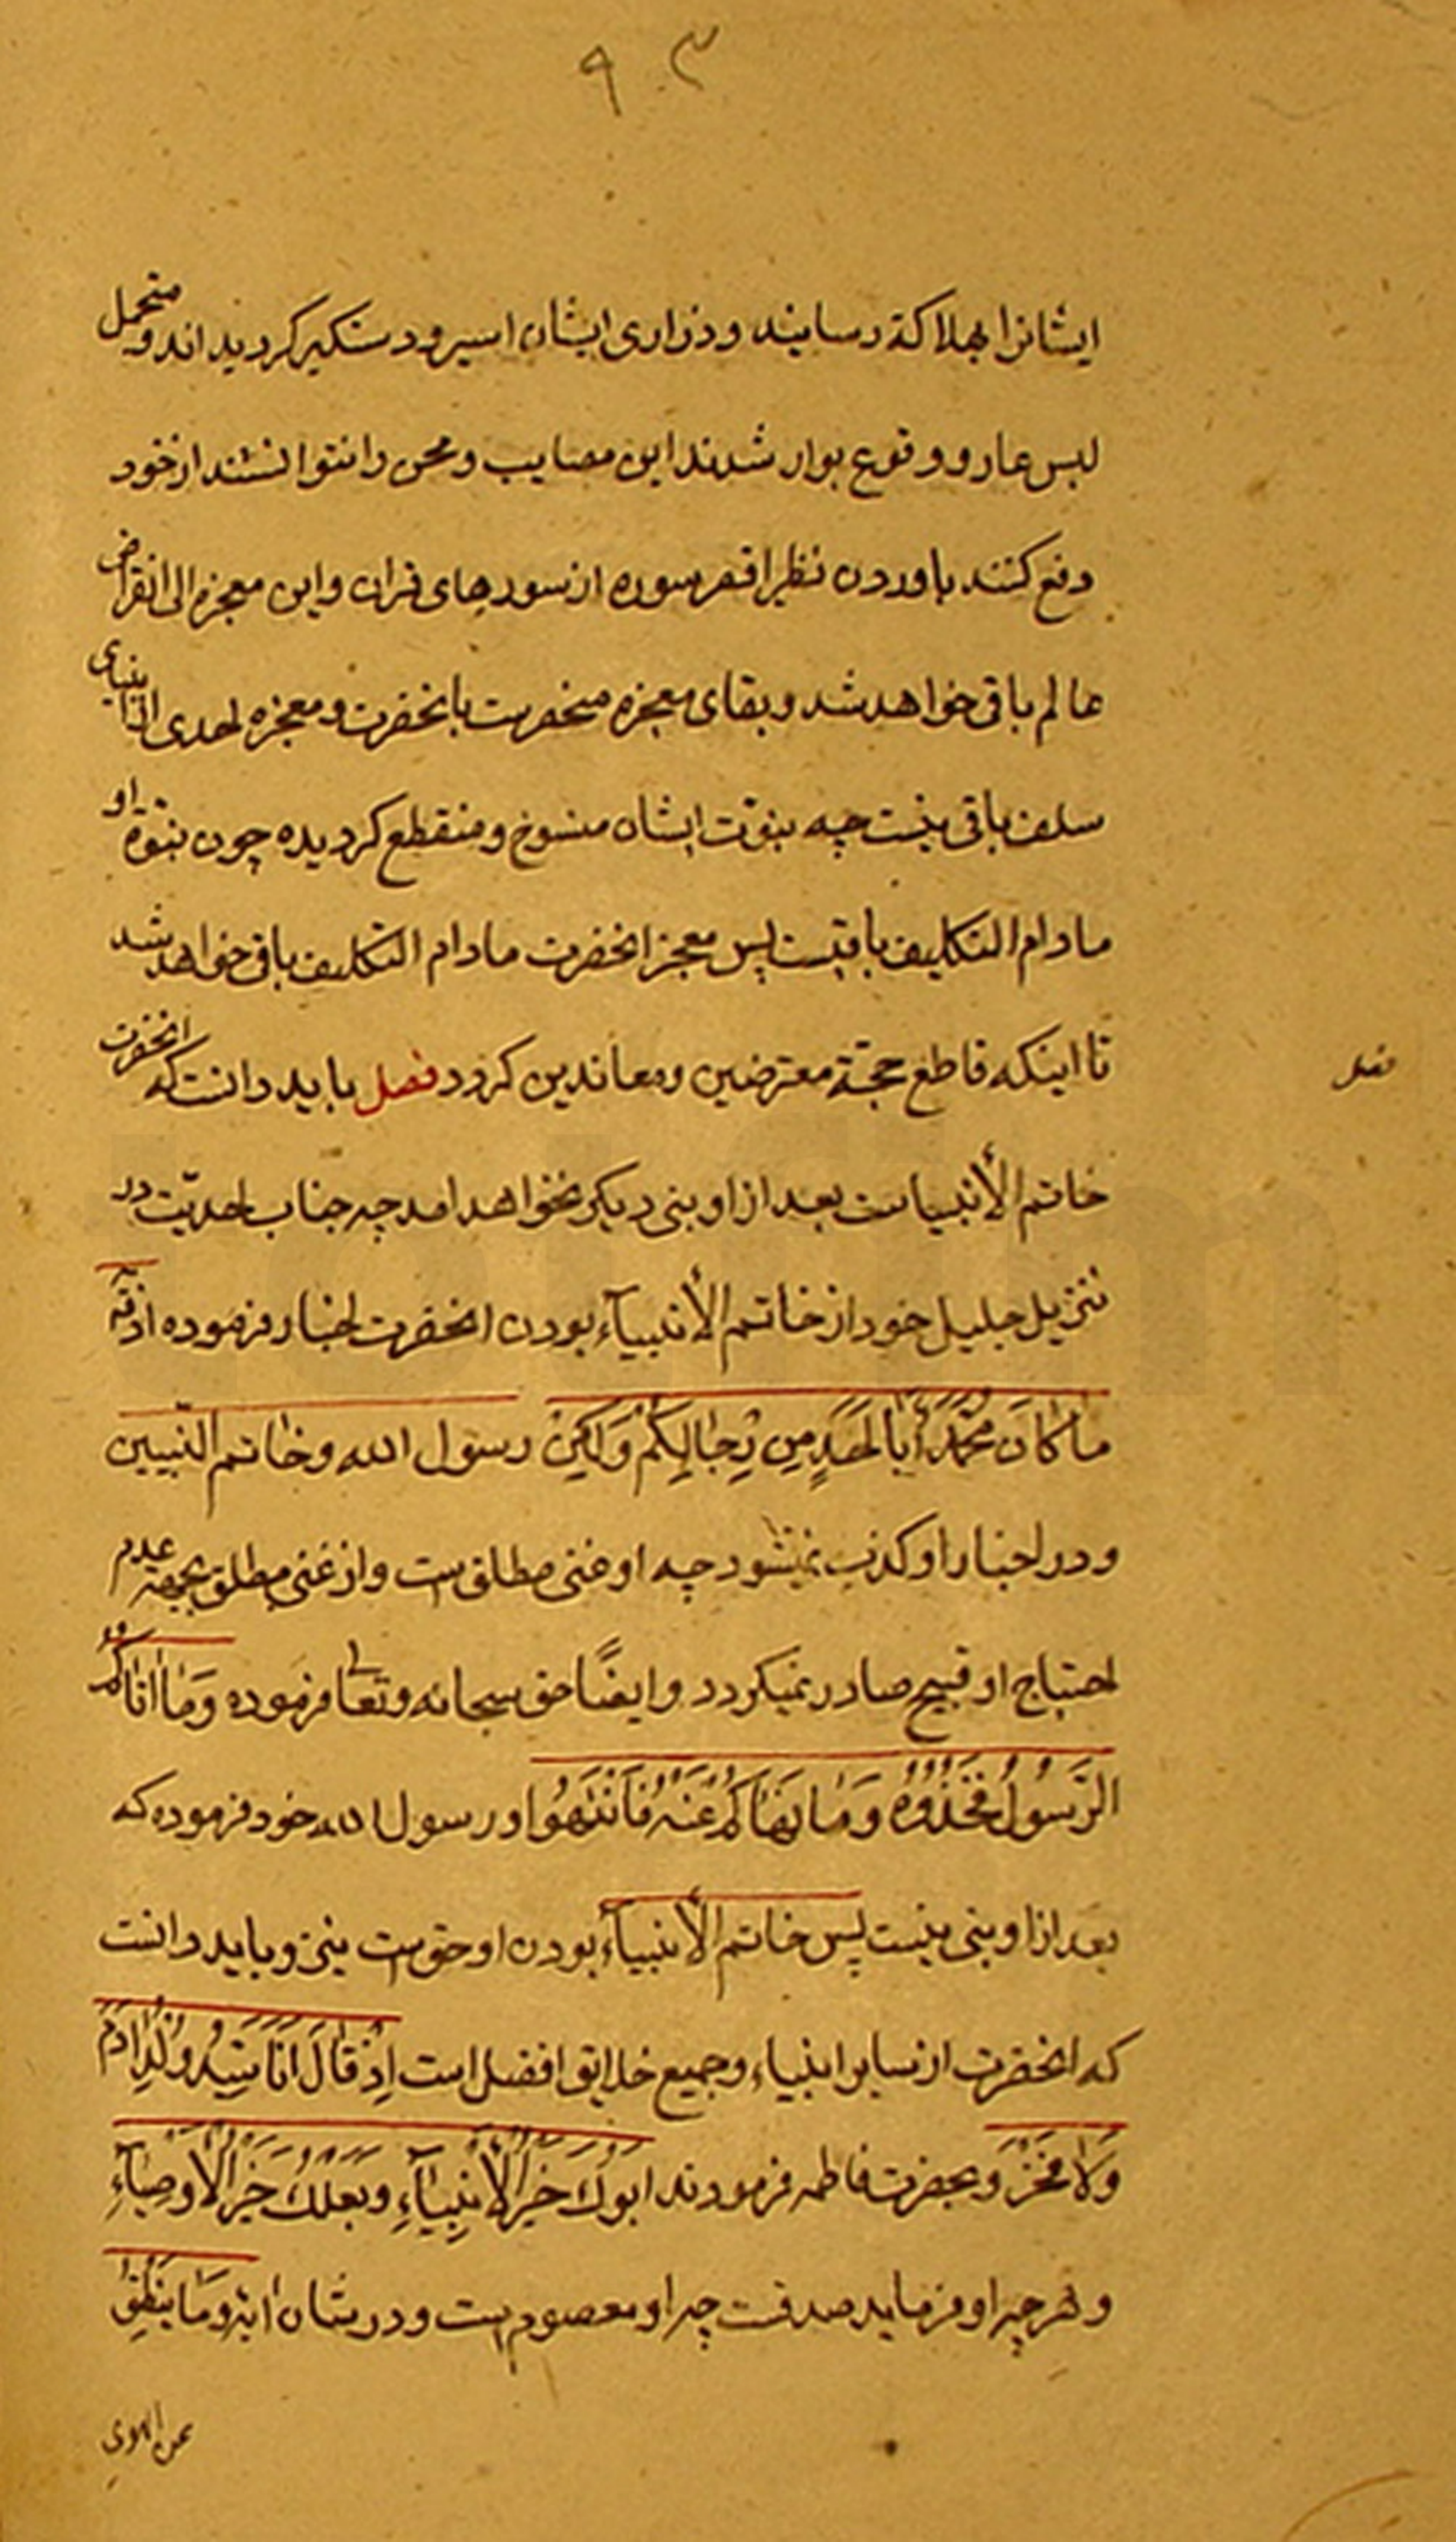 ۹۰۳
ایشانرا بهلاکة رسانیند و ذراری ایشان اسیر و دستکیر کردیداند و متحمل
لبس عار و وقوع بوار شدند این مصایب و محن را نتوانستند از خود
دفع کنند باوردن نظیر اقصر سوره از سورهای قران و این معجزه الی انقراض
عالم باقی خواهد شد و بقای معجزه منحضرست بانحضرت و معجزه احدی از انبیای
سلف باقی نیست چه نبوّت ایشان منسوخ و منقطع کردیده چون نبوّة او
مادام التکلیف باقیست پس معجز انحضرت مادام التکلیف باقی خواهد شد
تا اینکه قاطع حجّة معترضین و معاندین کردد فصل باید دانست که انحضرت
فصل
خاتم الأنبیاست بعد از او نبی دیکر نخواهد امد چه جناب احدیّت در
تنزیل جلیل خود از خاتم الأنبیآء بودن انحضرت اخبار فرموده اذ قال
ما کانَ مُحَمَّدٌ أبا اَحَدٍ مِن رِجالِکُم وَلکِن رسول الله و خاتم النّبیین
و در اخبار او کذب نمیشود چه او غنی مطلق است و از غنی مطلق بجهة عدم
احتیاج او قبیح صادر نمیکردد و ایضًا حق سبحانه و تعالی فرموده وَما اتاکُم
الرَّسولُ فَخُذُوهُ وَما نَهاکُم عَنهُ فَانتَهُوا و رسول الله خود فرموده که
بعد از او نبی نیست پس خاتم الأنبیآء بودن او حق است نیز و باید دانست
که انحضرت از سایر انبیاء و جمیع خلایق افضل است اِذ قالَ انَا سَیِّدُ وُلدِ ادَمَ
وَلا فَخرَ و بحضرت فاطمه فرمودند ابوکِ خَیرُ الأنبِیآءِ وَبَعلُکِ خَیرُ الأوصِیآءِ
و هر چه او فرماید صدقست چه او معصوم است و در شان او ایه وَما یَنطِقُ
عن الهوی